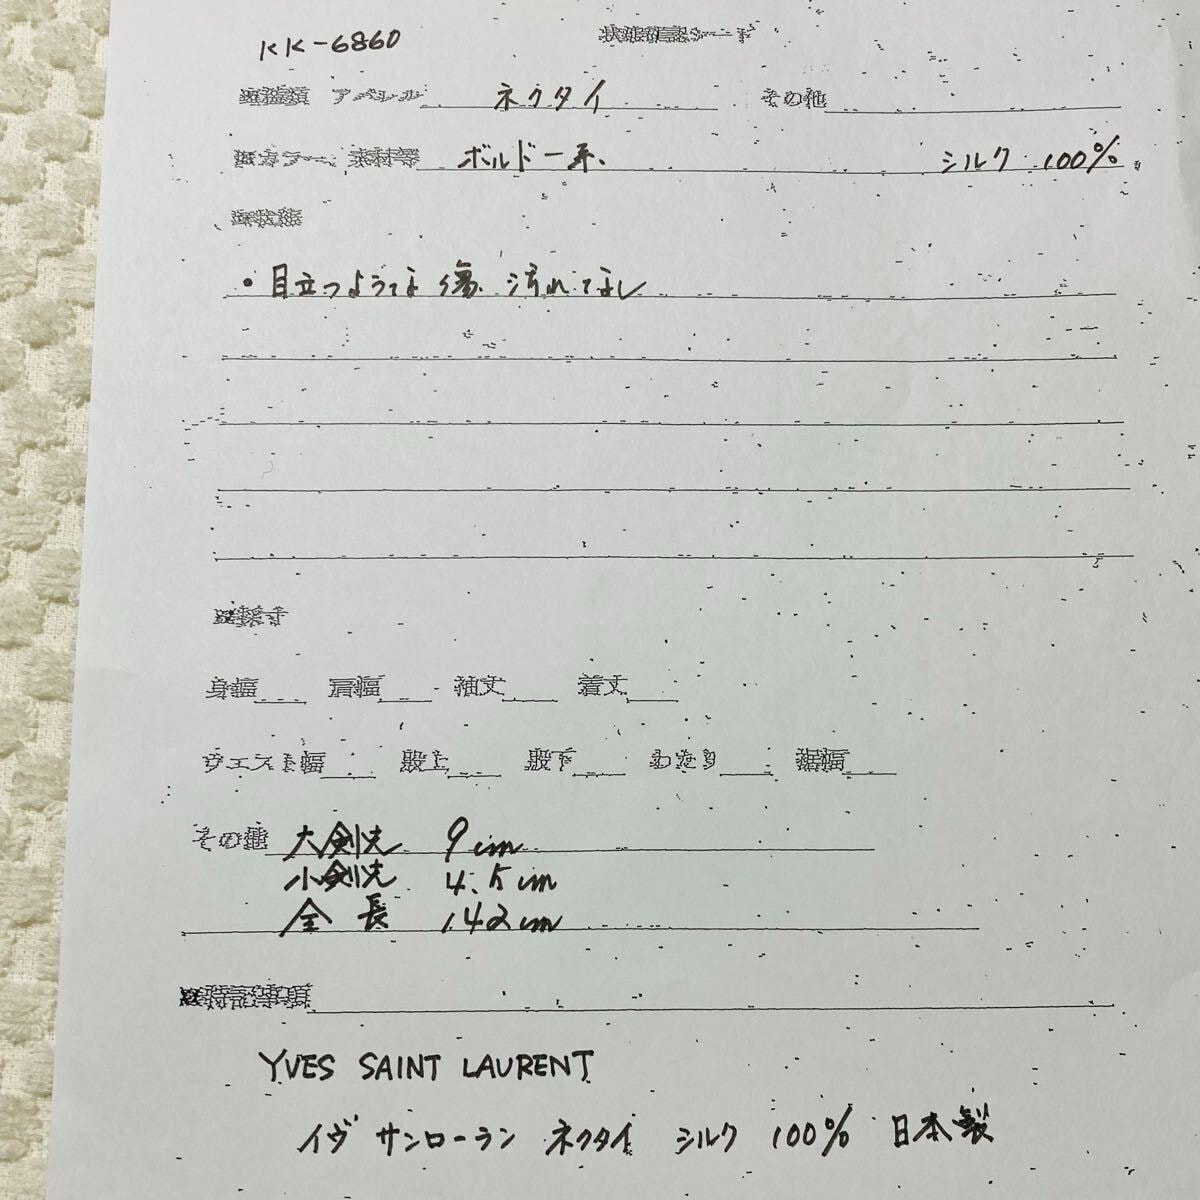 KK-6860 状態確認シート
アパレル ネクタイ その他
カラー、素材等 ボルドー系、 シルク 100%
状態
・目立つような 傷、汚れてなし
採寸
身幅 肩幅 袖丈 着丈
ウエスト幅 股上 股下 わたり 裾幅
その他 大剣先 9cm
小剣先 4.5cm
全長 142cm
特記事項
YVES SAINT LAURENT
イヴ サンローラン ネクタイ シルク 100% 日本製